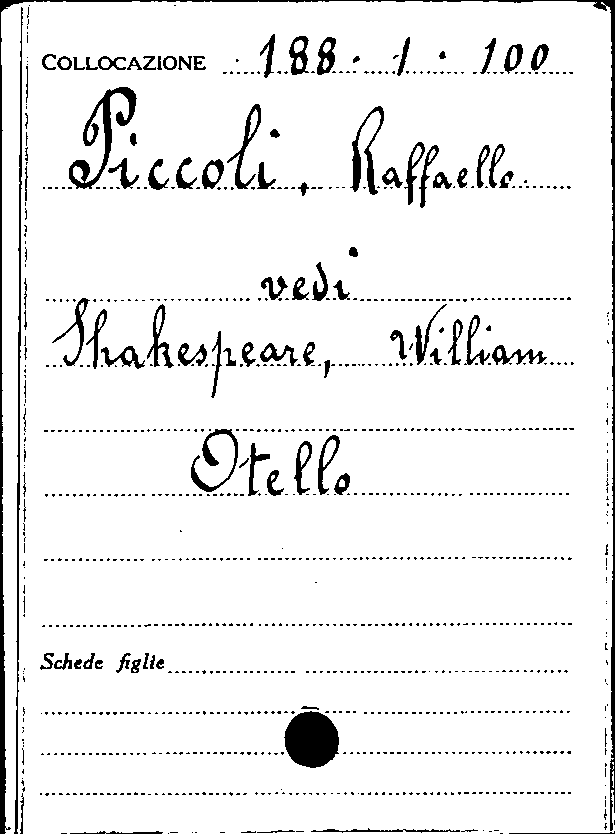 COLLOCAZIONE 188 · 1 · 100
Piccoli, Raffaello
vedi
Shakespeare, William
Otello
Schede figlie